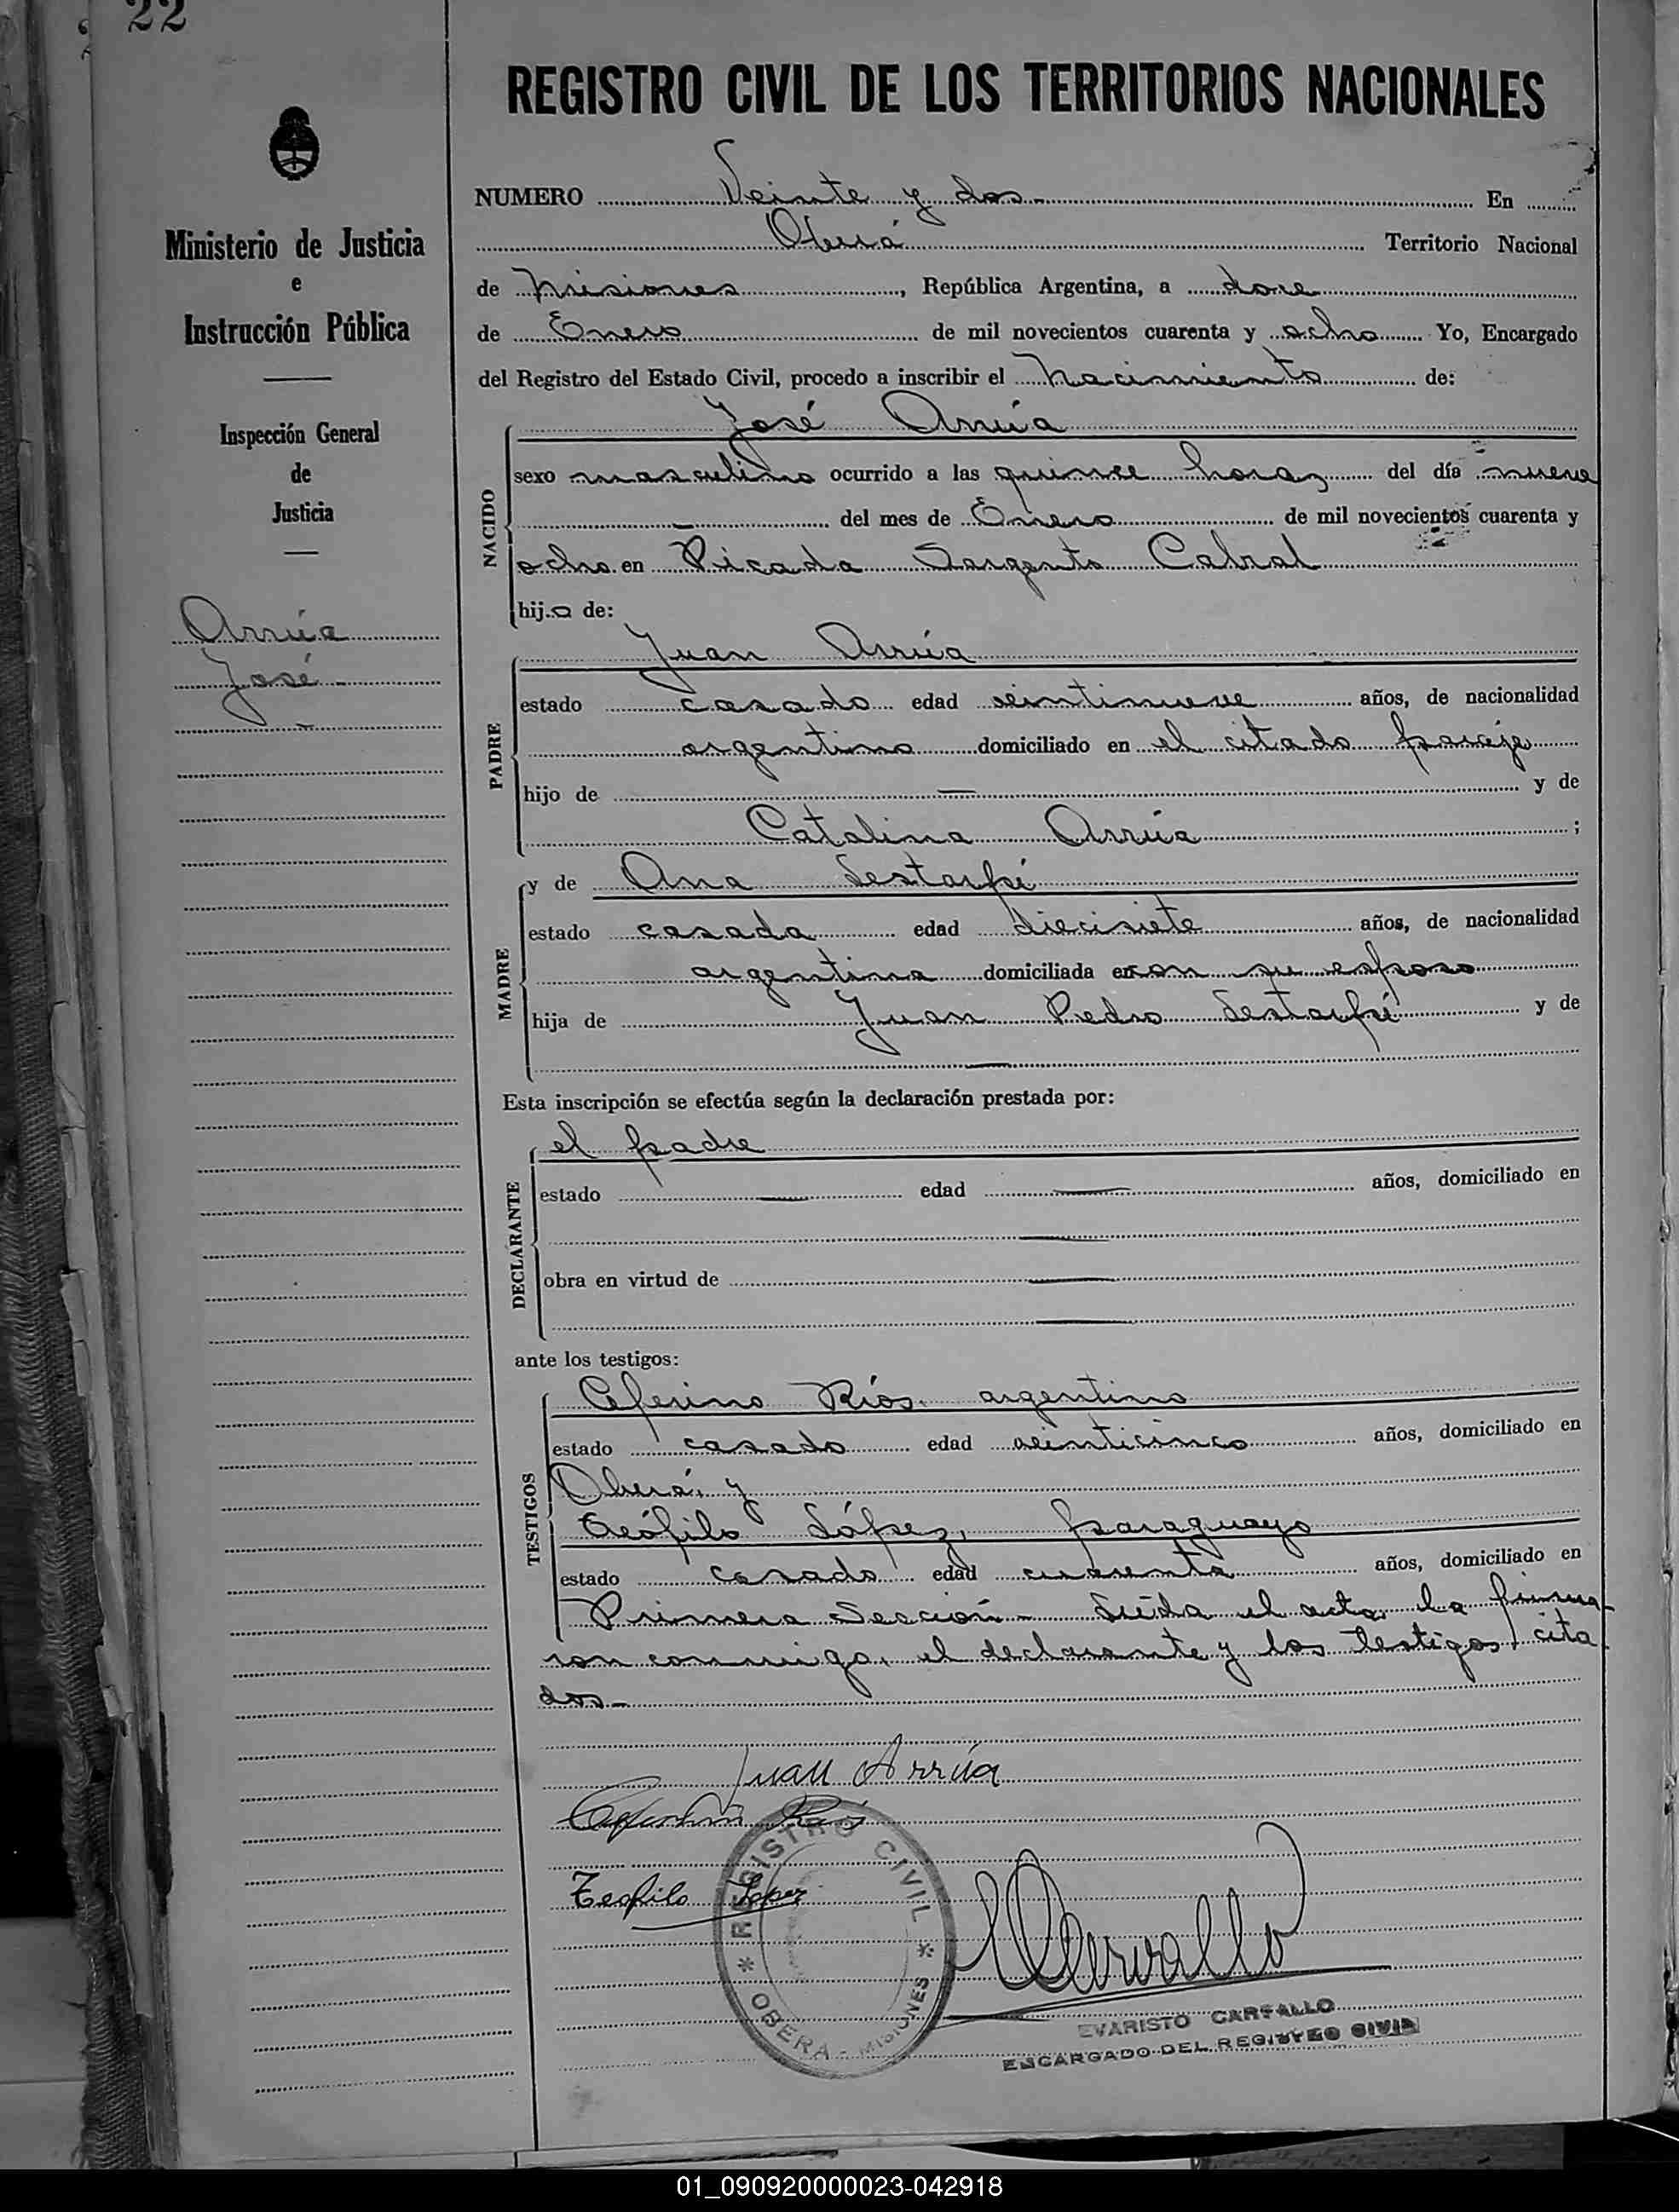 22
REGISTRO CIVIL DE LOS TERRITORIOS NACIONALES
Ministerio de Justicia
e
Instrucción Pública
Inspección General
de
Justicia
Arrúa
José -
NUMERO Veinte y dos - En
Oberá Territorio Nacional
de Misiones, República Argentina, a doce
de Enero de mil novecientos cuarenta y ocho Yo, Encargado
del Registro del Estado Civil, procedo a inscribir el nacimiento de:
NACIDO
José Arrúa
sexo masculino ocurrido a las quince horas del día nueve
- del mes de Enero de mil novecientos cuarenta y
ocho en Picada Sargento Cabral
hijo de:
PADRE
Juan Arrúa
estado casado edad veintinueve años, de nacionalidad
argentino domiciliado en el citado paraje
hijo de — y de
Catalina Arrúa ;
MADRE
y de Ana
estado casada edad diecisiete años, de nacionalidad
argentina domiciliada con su esposo
hija de Juan Pedro y de
—
Esta inscripción se efectúa según la declaración prestada por:
DECLARANTE
el padre
estado — edad — años, domiciliado en
—
obra en virtud de —
—
ante los testigos:
TESTIGOS
Ceferino Ríos, argentino
estado casado edad veinticinco años, domiciliado en
Oberá, y
Teófilo López, paraguayo
estado casado edad cuarenta años, domiciliado en
Primera Sección - Leída el acta, la firma
ron conmigo, el declarante y los testigos cita
dos -
Juan Arrúa
Ríos
Teofilo Lopez
REGISTRO CIVIL
* OBERA - MISIONES *
Carvallo
EVARISTO CARVALLO
ENCARGADO DEL REGISTRO CIVIL
01_090920000023-042918